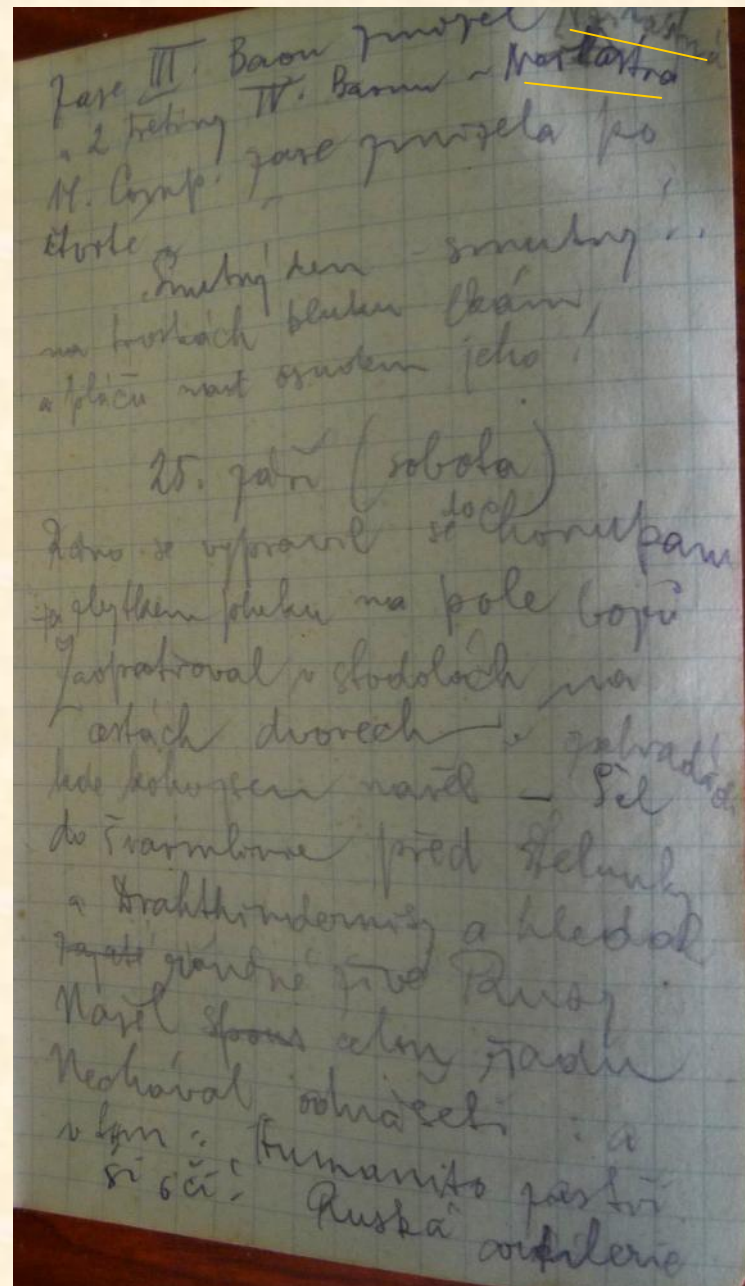 Zase III. Baon zmizel
a 2 třetiny IV. Baonu –
14. Comp. zase zmizela po
čtvrté –
Smutný den – smutný!..
na troskách pluku lkám,
a pláču nad osudem jeho!
25. září (sobota)
Ráno se vypravil se doch
zbytkem pluku na pole bojů
Zaopatřoval v stodolách na
cestách dvorech – v zahradách
kde koho jsem našel – Šel
do švarmlinie před
a Drahthindernisy a hledal
raněné živé Rusy
Našel celou řadu
Nechával odnášeti : a
v tom : Humanito zastři
si oči! Ruská artilerie